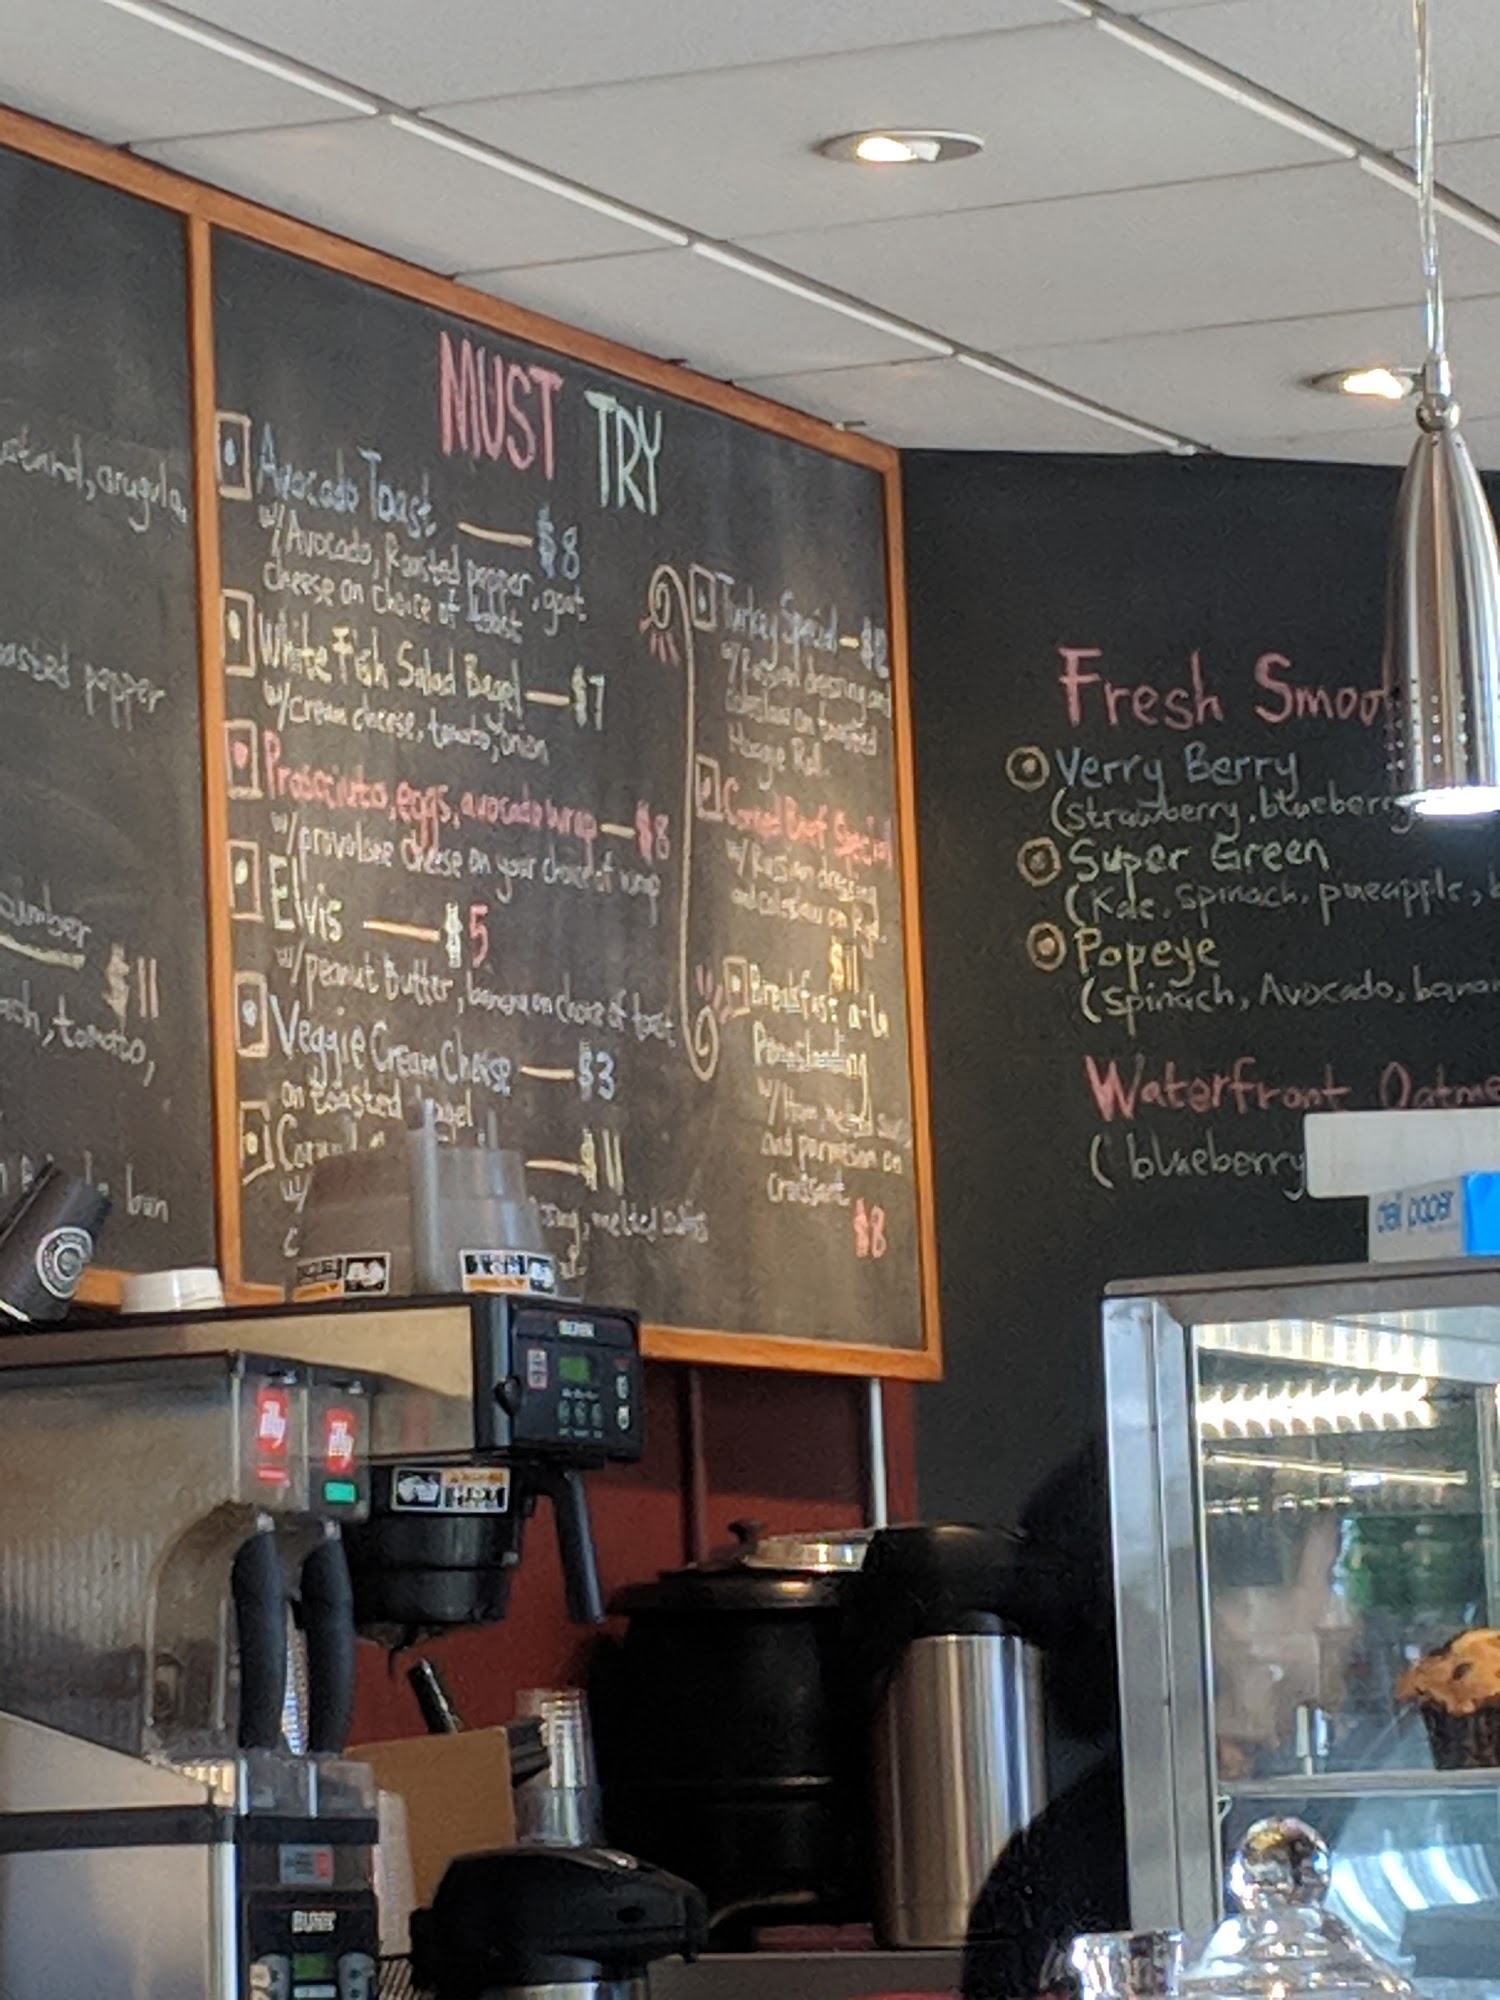 arugula,
pepper
$11
tomato,
bun
MUST TRY
Avocado Toast $8
w/Avocado, Roasted pepper, goat
cheese on choice of
White Fish Salad Bagel $7
w/cream cheese, tomato, onion
Prosciuto, eggs, avocado wrap $8
w/provolone cheese on your choice of wrap
Elvis $5
w/peanut Butter, banana on choice of toast
Veggie Cream Cheese $3
on toasted bagel
$11
melted swiss
Turkey Special
w/Russian dressing and
coleslaw on toasted
Hoagie Roll.
Corned Beef Special
w/Russian dressing
and coleslaw on Rye.
$11
Breakfast a-la
w/Ham, melted
and parmesan on
croissant.
$8
Fresh
Verry Berry
(strawberry, blueberry
Super Green
(Kale, Spinach, pineapple,
Popeye
(Spinach, Avocado,
Waterfront
(blueberry
deli paper
illy
illy
BUNN
BUNN